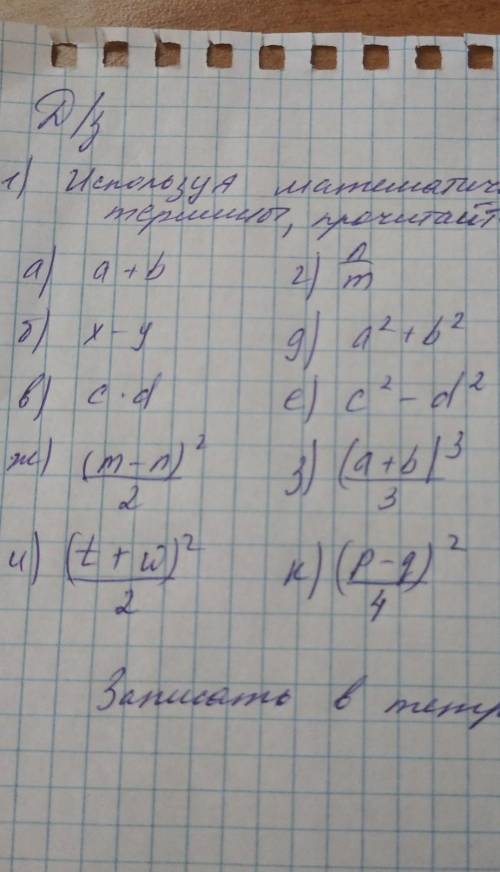 Д/з
1) Используя математич
термины, прочитайт
а) a + b г) n/m
б) x - y д) a² + b²
в) c · d е) c² - d²
ж) (m - n)²/2 з) (a + b)³/3
и) (t + w)²/2 к) (p - q)²/4
Записать в тетр